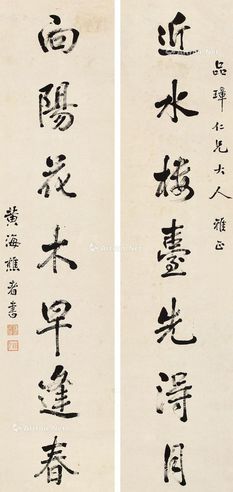 品璋仁兄大人雅正
近水楼臺先得月
向陽花木早逢春
黄海樵者書